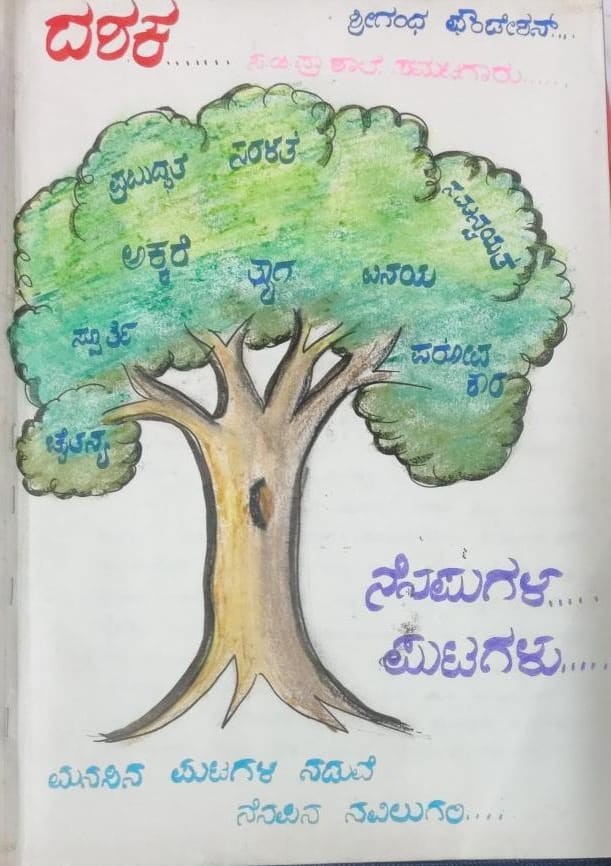 ದಶಕ.......
ಶ್ರೀಗಂಧ ಫೌಂಡೇಶನ್...
ಸ.ಹಿ.ಪ್ರಾ ಶಾಲೆ.
ಪ್ರಬುದ್ಧತ
ಸರಳತ
ಸಮನ್ವಯತ
ಅಕ್ಕರೆ
ತ್ಯಾಗ
ವಿನಯ
ಸ್ಪೂರ್ತಿ
ಪರೋಪ
ಕಾರ
ಚೈತನ್ಯ
ನೆನಪುಗಳ.....
ಪುಟಗಳು.....
ಮನಸಿನ ಪುಟಗಳ ನಡುವೆ
ನೆನಪಿನ ನವಿಲುಗರಿ....